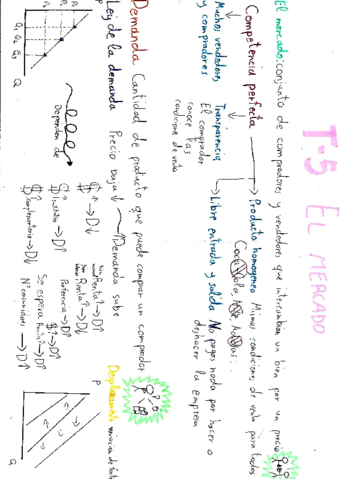 T-5 EL MERCADO
El mercado: conjunto de compradores y vendedores que intercambian un bien por un precio
Competencia perfecta → Producto homogeneo Mismas condiciones de venta para todos
Muchos vendedores y compradores
Transparencia El comprador conoce las condiciones de venta
Libre entrada y salida No pagas nada por hacer o deshacer la empresa
Demanda Cantidad de producto que puede comprar un comprador
Ley de la demanda Precio baja ↓ ↑ Demanda sube
Desplazamiento
P
P₁ P₂ P₃
Q₁ Q₂ Q₃
Q
Dependen de
$ ↑ → D↓
$ Sustitutivo → D↑
$ Complementario → D↓
Renta↑ → D↑
Renta↑ → D↓
Preferencia → D↑
Se espera $↑ → D↑
Renta↑ → D↑
Nº consumidores → D↑
P
Q